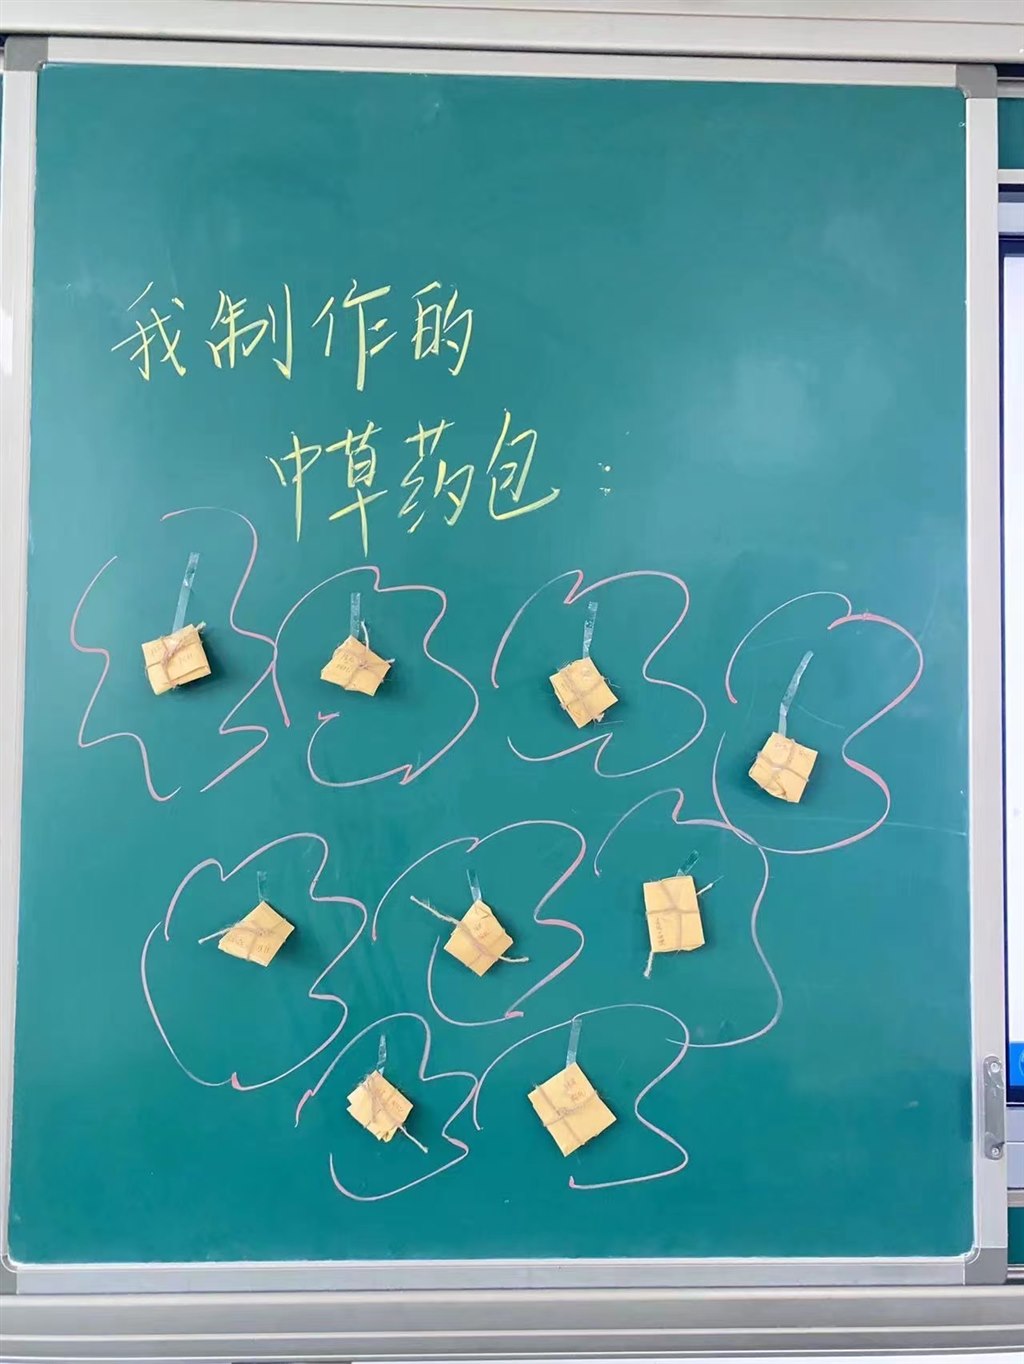 我制作的
中草药包：